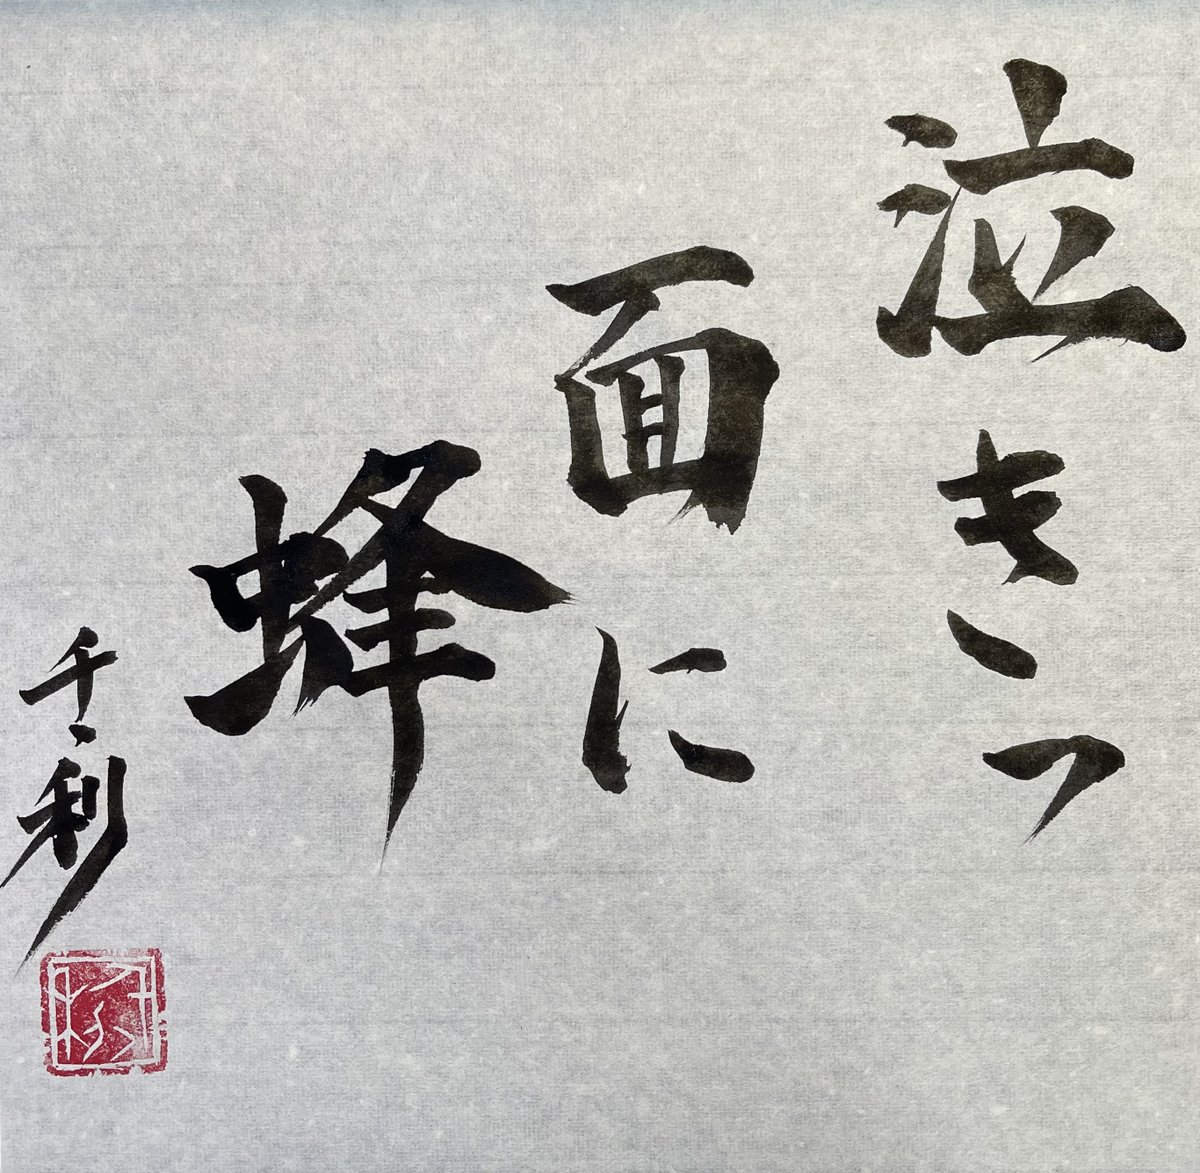 泣きっ
面に
蜂
千利